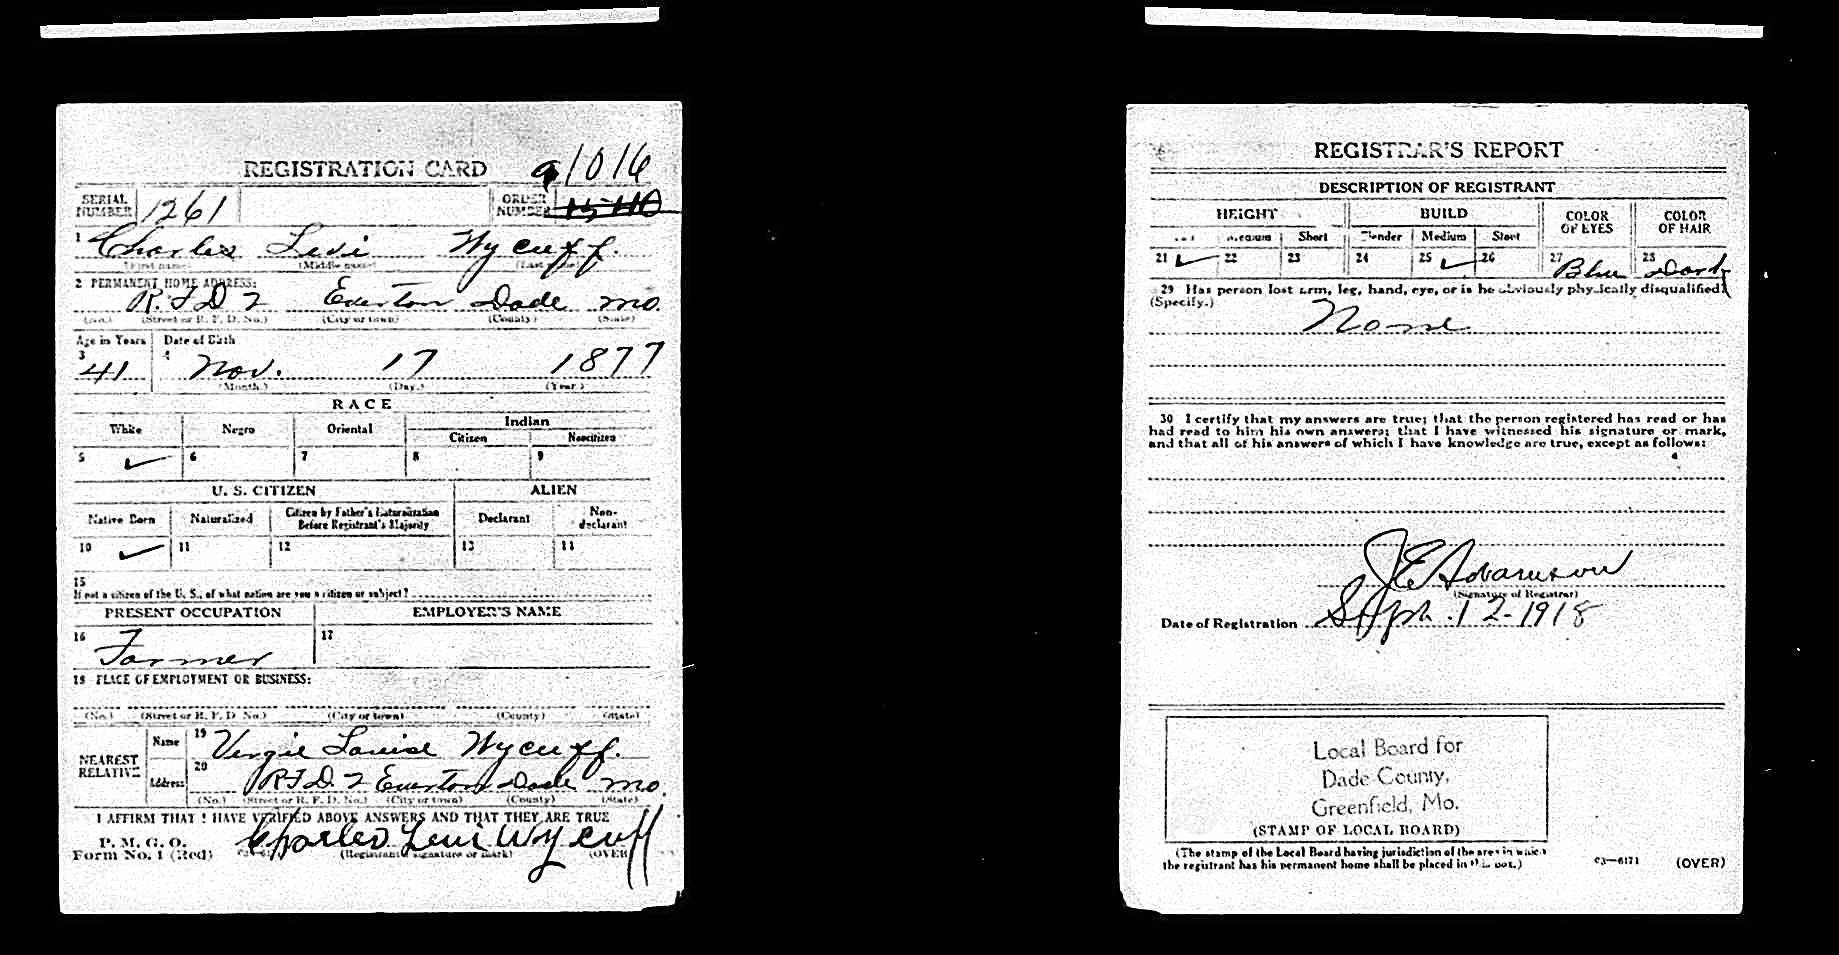 REGISTRATION CARD a1016
SERIAL NUMBER 1261 ORDER NUMBER
1 Charles Levi Wycuff.
(First name) (Middle name) (Last name)
2 PERMANENT HOME ADDRESS:
R.F.D 2 Everton Dade Mo.
(No.) (Street or R. F. D. No.) (City or town) (County) (State)
Age in Years Date of Birth
3 41 4 Nov. 17 1877
(Month.) (Day.) (Year.)
RACE
White Negro Oriental Indian
Citizen Noncitizen
5 ✓ 6 7 8 9
U. S. CITIZEN ALIEN
Native Born Naturalized Citizen by Father's Naturalization Before Registrant's Majority Declarant Non-declarant
10 ✓ 11 12 13 14
15
If not a citizen of the U. S., of what nation are you a citizen or subject?
PRESENT OCCUPATION EMPLOYER'S NAME
16 Farmer 17
18 PLACE OF EMPLOYMENT OR BUSINESS:
(No.) (Street or R. F. D. No.) (City or town) (County) (State)
NEAREST RELATIVE Name 19 Vergie Louise Wycuff.
Address 20 RFD. 2 Everton Dade Mo.
(No.) (Street or R. F. D. No.) (City or town) (County) (State)
I AFFIRM THAT I HAVE VERIFIED ABOVE ANSWERS AND THAT THEY ARE TRUE
P. M. G. O.
Form No. 1 (Red) Charles Levi Wycuff
(Registrant's signature or mark) (OVER)
REGISTRAR'S REPORT
DESCRIPTION OF REGISTRANT
HEIGHT BUILD COLOR OF EYES COLOR OF HAIR
Medium Short Slender Medium Stout
21 ✓ 22 23 24 25 ✓ 26 27 Blue 28 Dark
29 Has person lost arm, leg, hand, eye, or is he obviously physically disqualified?
(Specify.)
None
30 I certify that my answers are true; that the person registered has read or has
had read to him his own answers; that I have witnessed his signature or mark,
and that all of his answers of which I have knowledge are true, except as follows:
J E Adamson
(Signature of Registrar)
Date of Registration Sept. 12-1918
Local Board for
Dade County,
Greenfield, Mo.
(STAMP OF LOCAL BOARD)
(The stamp of the Local Board having jurisdiction of the area in which
the registrant has his permanent home shall be placed in this box.)
c3—6171 (OVER)